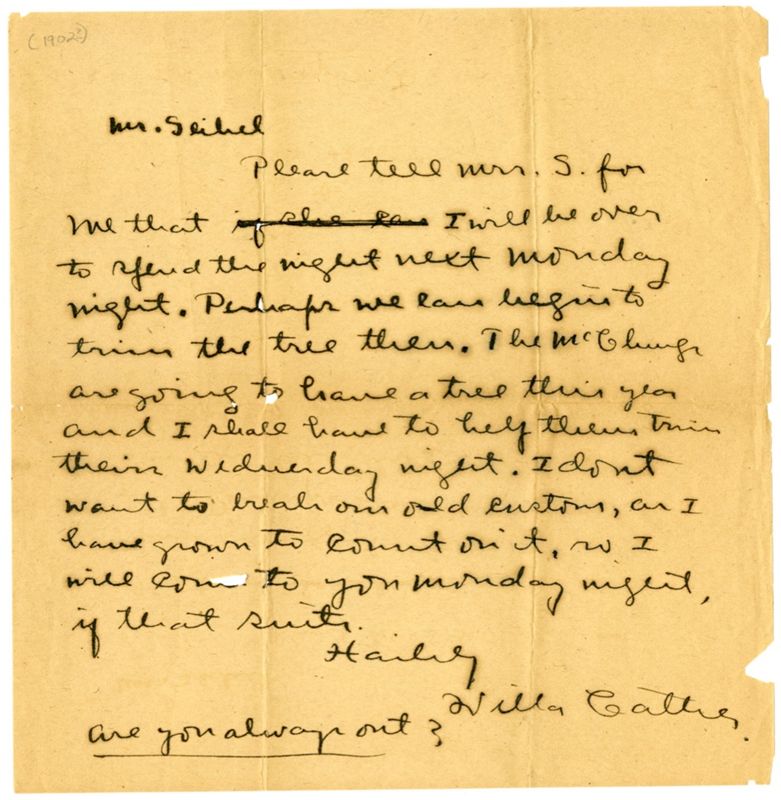 (1902?)
Mr. Seibel
Please tell Mrs. S. for
me that if she can I will be over
to spend the night next Monday
night. Perhaps we can begin to
trim the tree then. The McClungs
are going to have a tree this year
and I shall have to help them trim
theirs Wednesday night. I dont
want to break our old custom, as I
have grown to count on it, so I
will come to you Monday night,
if that suits.
Hastily
Willa Cather.
Are you always out?